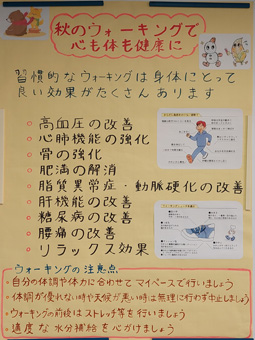 秋のウォーキングで
心も体も健康に
習慣的なウォーキングは身体にとって
良い効果がたくさんあります
○ 高血圧の改善
○ 心肺機能の強化
○ 骨の強化
○ 肥満の解消
○ 脂質異常症・動脈硬化の改善
○ 肝機能の改善
○ 糖尿病の改善
○ 腰痛の改善
○ リラックス効果
ウォーキングの注意点
・自分の体調や体力に合わせてマイペースで行いましょう
・体調が優れない時や天候が悪い時は無理に行わず中止しましょう
・ウォーキングの前後はストレッチ等を行いましょう
・適度な水分補給を心がけましょう